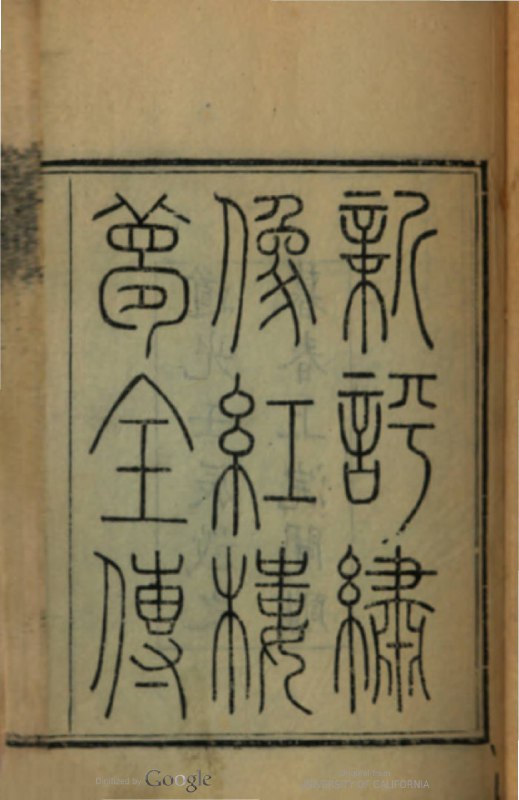 新評繡
像紅樓
夢全傳
Digitized by Google
Original from
UNIVERSITY OF CALIFORNIA